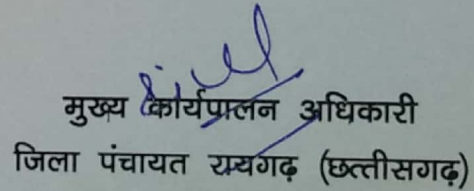 मुख्य कार्यपालन अधिकारी
जिला पंचायत रायगढ़ (छत्तीसगढ़)